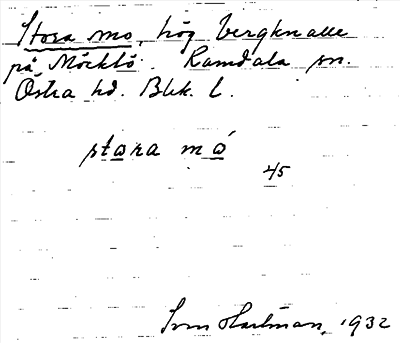 Stora mo, hög bergknalle
på Möcklö. Ramdala sn.
Östra hd. Blek. l.
stɷra mɷ́
45
Sven Hartman, 1932